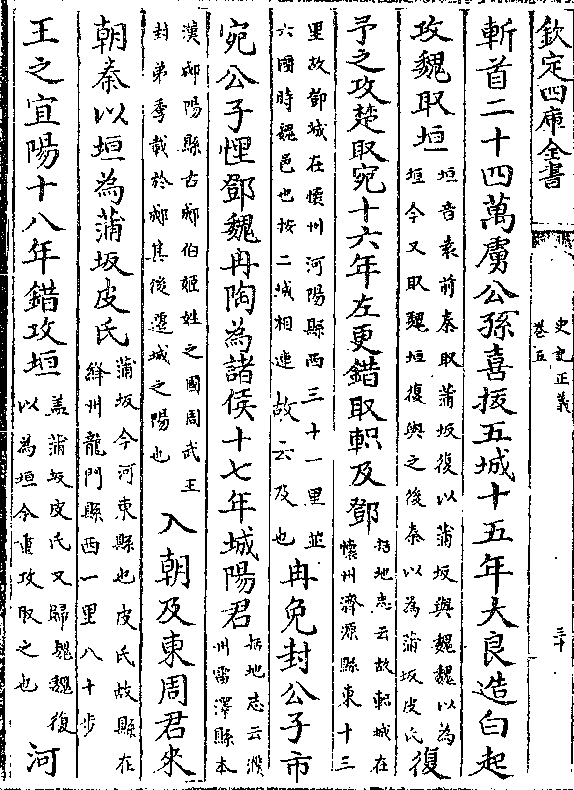 欽定四庫全書
史記正義
卷五
三十
斬首二十四萬虜公孫喜拔五城十五年大良造白起
攻魏取垣
垣音袁前秦取蒲坂復以蒲坂與魏魏以為
垣今又取魏垣復與之後秦以為蒲坂皮氏
復
予之攻楚取宛十六年左更錯取軹及鄧
括地志云故軹城在
懷州濟源縣東十三
里故鄧城在懷州河陽縣西三十一里並
六國時魏邑也按二城相連故云及也
冉免封公子市
宛公子悝鄧魏冉陶為諸侯十七年城陽君
括地志云濮
州雷澤縣本
漢郕陽縣古郕伯姬姓之國周武王
封弟季載於郕其後遷城之陽也
入朝及東周君來
朝秦以垣為蒲坂皮氏
蒲坂今河東縣也皮氏故縣在
絳州龍門縣西一里八十步
王之宜陽十八年錯攻垣
蓋蒲坂皮氏又歸魏魏復
以為垣今重攻取之也
河